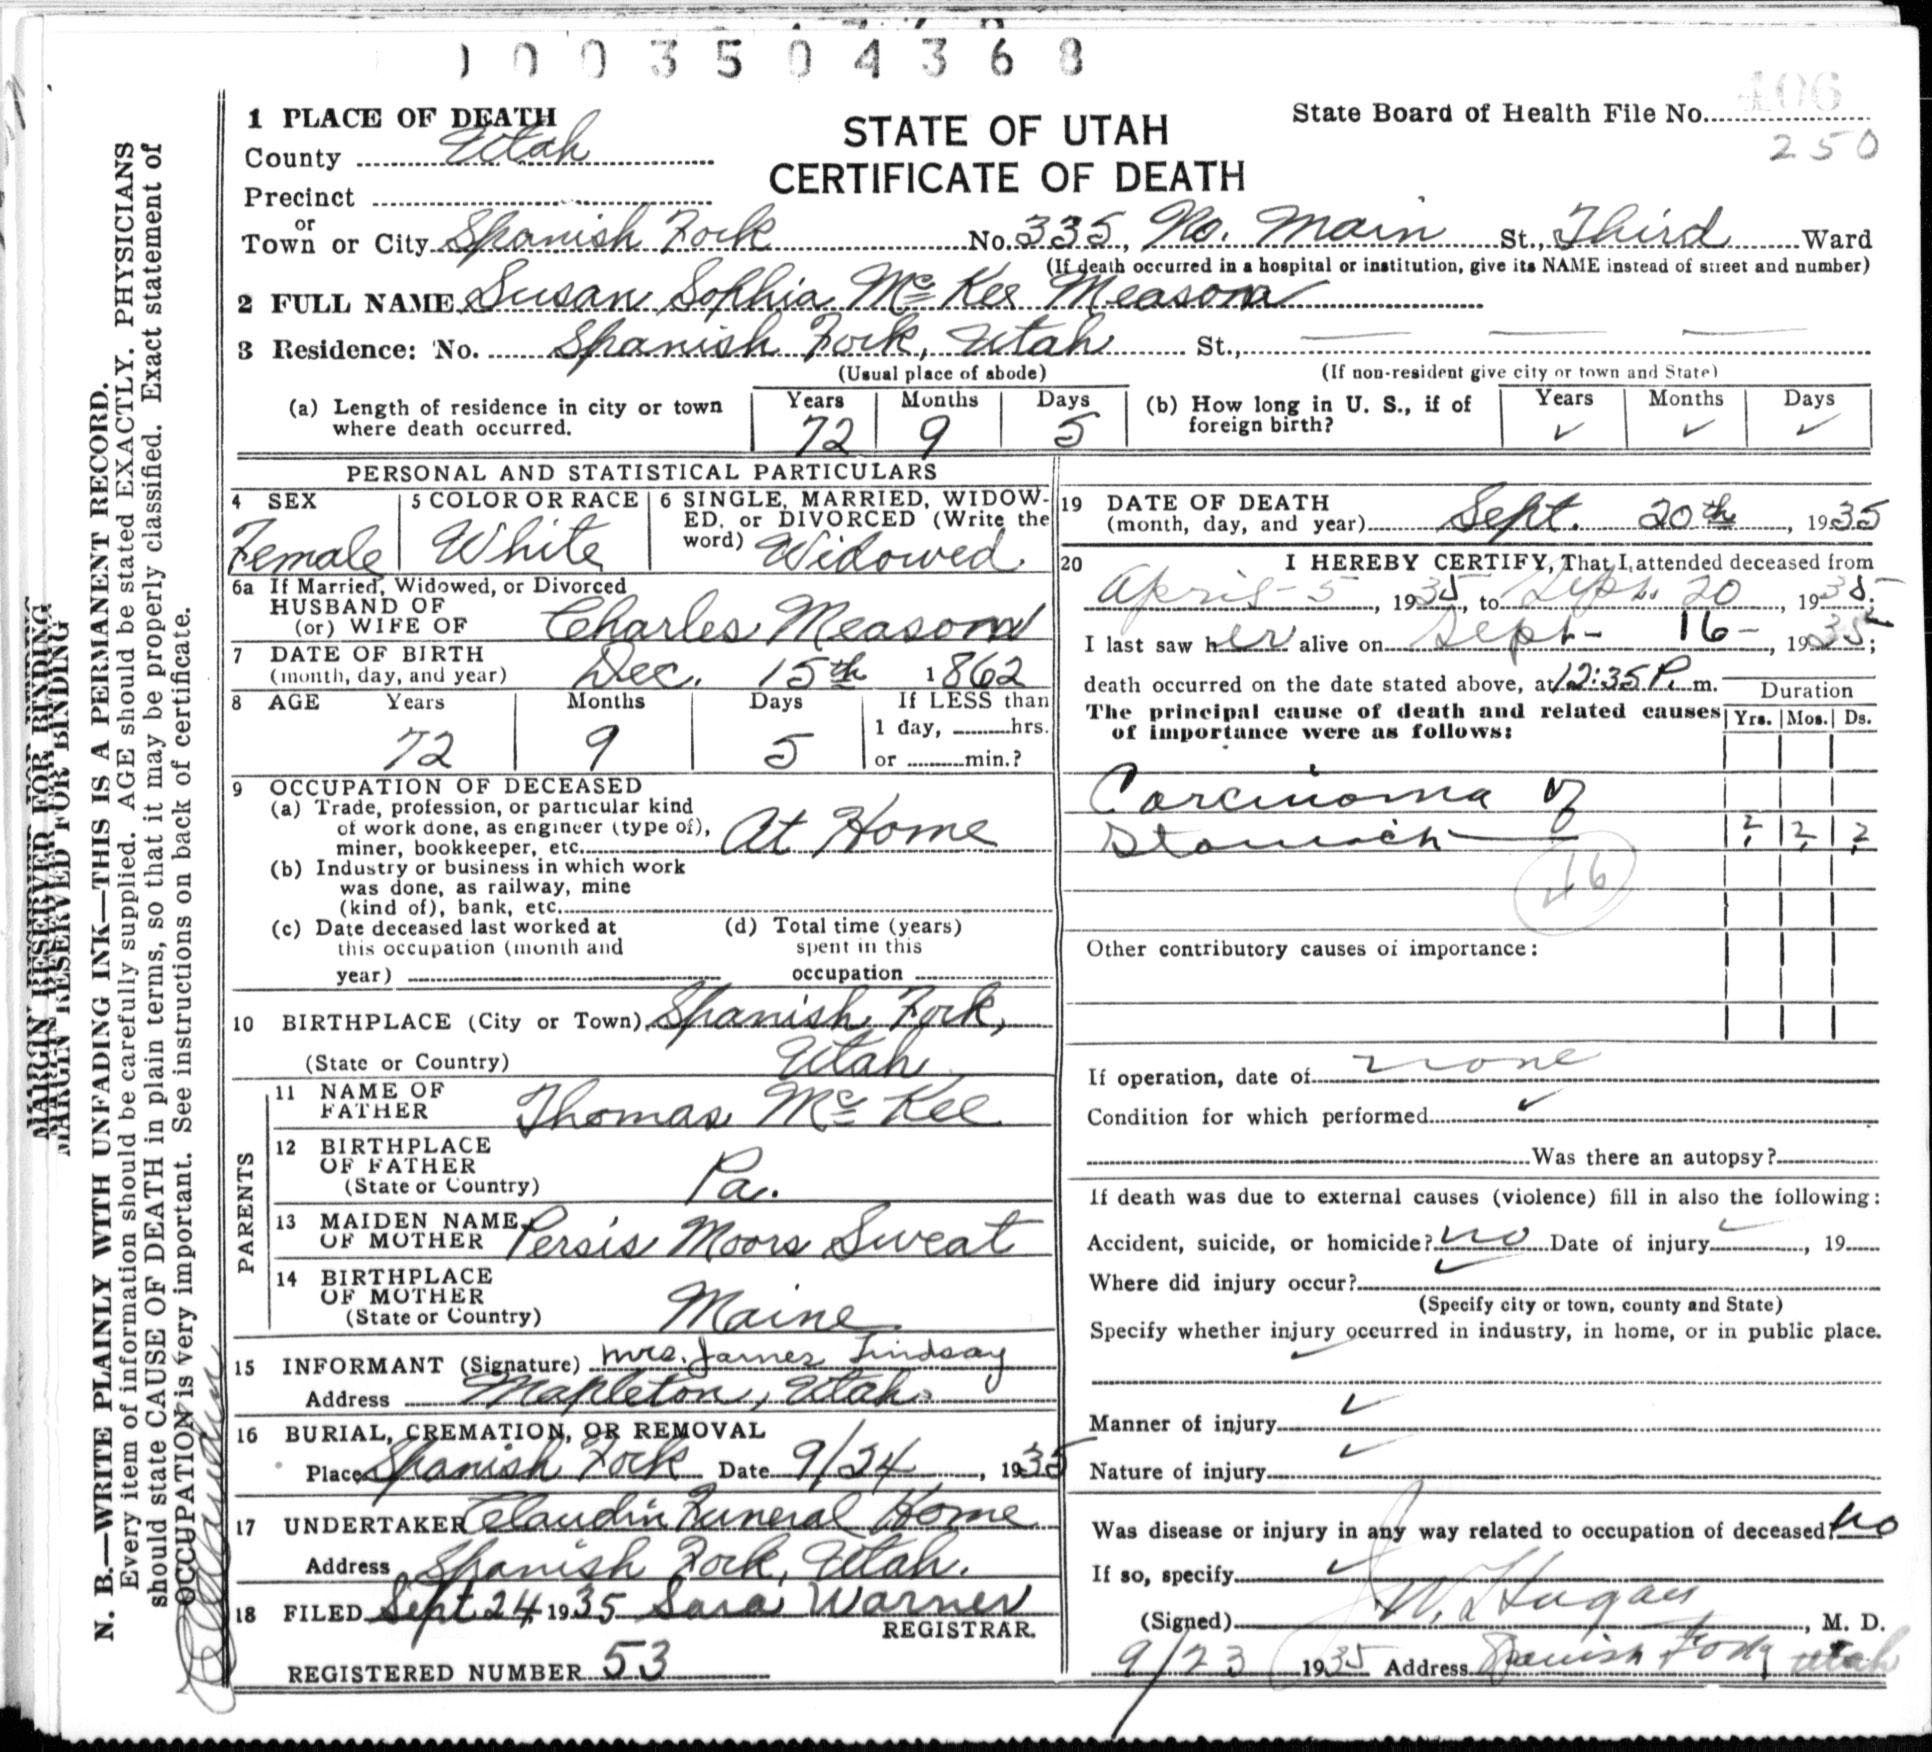 1003504368
1 PLACE OF DEATH
County Utah
STATE OF UTAH
CERTIFICATE OF DEATH
State Board of Health File No. 406
250
Precinct
or
Town or City Spanish Fork No. 335, No. Main St., Third Ward
(If death occurred in a hospital or institution, give its NAME instead of street and number)
2 FULL NAME Susan Sophia McKee Measom
3 Residence: No. Spanish Fork, Utah St.,
(Usual place of abode) (If non-resident give city or town and State)
(a) Length of residence in city or town where death occurred. Years 72 Months 9 Days 5
(b) How long in U. S., if of foreign birth? Years ✓ Months ✓ Days ✓
PERSONAL AND STATISTICAL PARTICULARS
4 SEX
Female
5 COLOR OR RACE
White
6 SINGLE, MARRIED, WIDOW-
ED, or DIVORCED (Write the
word) Widowed
6a If Married, Widowed, or Divorced
HUSBAND OF
(or) WIFE OF Charles Measom
7 DATE OF BIRTH
(month, day, and year) Dec. 15th 1862
8 AGE Years Months Days If LESS than
72 9 5 1 day, hrs.
or min.?
9 OCCUPATION OF DECEASED
(a) Trade, profession, or particular kind
of work done, as engineer (type of),
miner, bookkeeper, etc. At Home
(b) Industry or business in which work
was done, as railway, mine
(kind of), bank, etc.
(c) Date deceased last worked at
this occupation (month and
year)
(d) Total time (years)
spent in this
occupation
10 BIRTHPLACE (City or Town) Spanish Fork,
(State or Country) Utah
PARENTS
11 NAME OF
FATHER Thomas McKee
12 BIRTHPLACE
OF FATHER
(State or Country) Pa.
13 MAIDEN NAME
OF MOTHER Persis Moors Sweat
14 BIRTHPLACE
OF MOTHER
(State or Country) Maine
15 INFORMANT (Signature) Mrs. James Lindsay
Address Mapleton, Utah.
16 BURIAL, CREMATION, OR REMOVAL
Place Spanish Fork Date 9/24, 1935
17 UNDERTAKER Claudin Funeral Home
Address Spanish Fork, Utah.
18 FILED Sept 24 1935 Sara Warner
REGISTRAR.
REGISTERED NUMBER 53
19 DATE OF DEATH
(month, day, and year) Sept. 20th, 1935
20 I HEREBY CERTIFY, That I attended deceased from
April-5, 1935, to Sept. 20, 1935.
I last saw her alive on Sept- 16-, 1935;
death occurred on the date stated above, at 12:35 P. m.
The principal cause of death and related causes
of importance were as follows:
Duration
Yrs. Mos. Ds.
Carcinoma of
Stomach ? ? ?
46
Other contributory causes of importance:
If operation, date of none
Condition for which performed ✓
Was there an autopsy?
If death was due to external causes (violence) fill in also the following:
Accident, suicide, or homicide? no Date of injury ✓, 19
Where did injury occur? ✓
(Specify city or town, county and State)
Specify whether injury occurred in industry, in home, or in public place.
✓
Manner of injury ✓
Nature of injury ✓
Was disease or injury in any way related to occupation of deceased? no
If so, specify ✓
(Signed) J. W. Hagan, M. D.
9/23 1935 Address Spanish Fork Utah
MARGIN RESERVED FOR BINDING
MARGIN RESERVED FOR BINDING
N. B.—WRITE PLAINLY WITH UNFADING INK—THIS IS A PERMANENT RECORD.
Every item of information should be carefully supplied. AGE should be stated EXACTLY. PHYSICIANS
should state CAUSE OF DEATH in plain terms, so that it may be properly classified. Exact statement of
OCCUPATION is very important. See instructions on back of certificate.